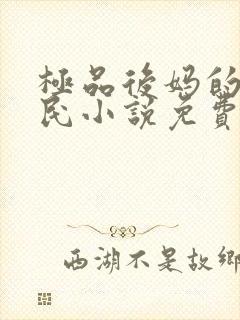 極品後妈的
民小說免費
西湖不是故鄉